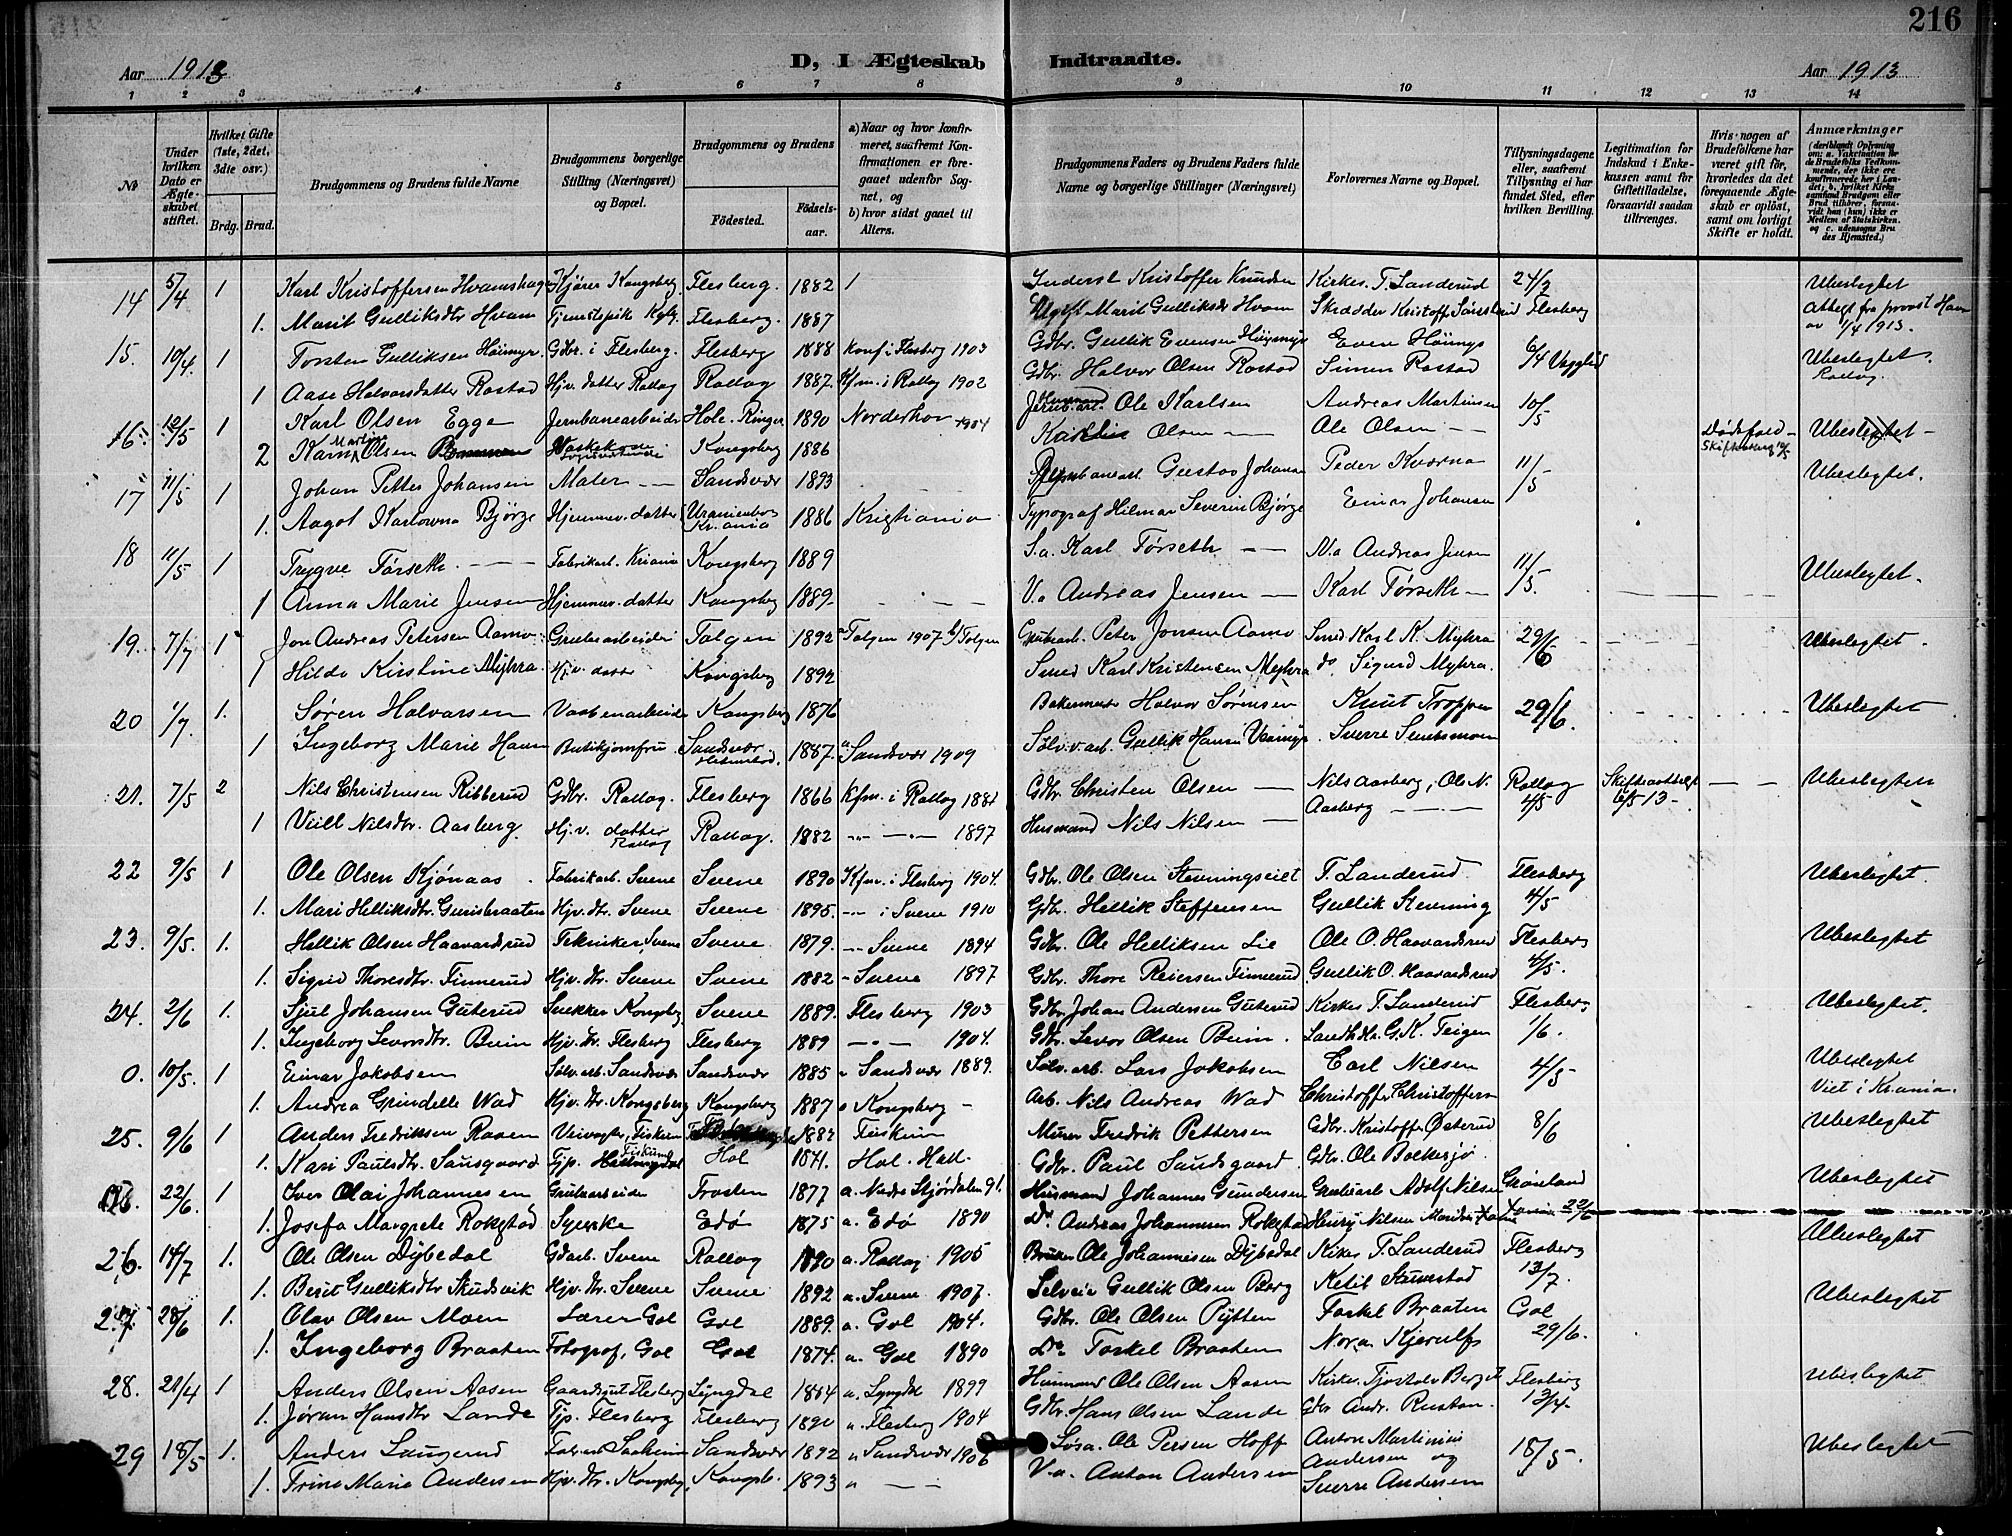 216
D, I Ægteskab Indtraadte.
Aar 1913
Aar 1913
1 2 3 4 5 6 7 8 9 10 11 12 13 14
№
Under hvilken Dato er Ægteskabet stiftet.
Hvilket Gifte (1ste, 2det, 3die osv.)
Brdg. Brud.
Brudgommens og Brudens fulde Navne
Brudgommens borgerlige Stilling (Næringsvei) og Bopæl.
Brudgommens og Brudens
Fødested.
Fødselsaar.
a) Naar og hvor konfirmeret, saafremt Konfirmationen er foregaaet udenfor Sognet, og
b) hvor sidst gaaet til Alters.
Brudgommens Faders og Brudens Faders fulde Navne og borgerlige Stillinger (Næringsvei)
Forlovernes Navne og Bopæl.
Tillysningsdagene eller, saafremt Tillysning ei har fundet Sted, efter hvilken Bevilling.
Legitimation for Indskud i Enkekassen samt for Giftetilladelse, forsaavidt saadan tiltrænges.
Hvis nogen af Brudefolkene har været gift før, hvorledes da det foregaaende Ægteskab er opløst, samt om lovligt Skifte er holdt.
Anmærkninger (deriblandt Oplysning om: a. Vakcination for de Brudefolks Vedkommende, der ikke ere konfirmerede her i Landet; b. hvilket Kirkesamfund Brudgom eller Brud tilhører, forsaavidt han (hun) ikke er Medlem af Statskirken. og c. udensogns Brudes Hjemsted.)
14 5/4 1 Karl Kristoffersen Hvamshage Kjører Kongsberg Flesberg. 1882 Inderst Kristoffer Knudsen Kirkes. T. Landerud 24/3 Ubeslegtet
1. Marit Gulliksdtr Hvam Tjenestepike Kgbg. Flesberg. 1887 Ugift Marit Gulliksdtr Hvam Skrædder Kristoff. Flesberg Attest fra provst
av 1/4 1913.
15. 10/4. 1 Torsten Gulliksen Høimyr Gdbr. i Flesberg. Flesberg 1888 Konf i Flesberg 1903 Gdbr. Gullik Evensen Høymyr Even Høimyr 6/4 Ubeslegtet.
1 Aase Halvorsdatter Rostad Hjv. datter Rollag Rollag 1887. Kfm. i Rollag 1902 Gdbr. Halvor Olsen Rostad Simen Rostad Rollag.
16. 12/5 1 Karl Olsen Egge Jernbanearbeider Hole. Ringer. 1890 Norderhov 1904 Ole Karlsen Andreas Martinsen 10/5
2 Karn Martin Olsen Kongsberg 1886 Olsen Ole Olsen Dødsfald Ubeslegtet
17 11/5 1 Johan Petter Johansen Maler Sandsvær 1893 Gustav Johansen Peder Kværna 11/5 Ubeslegtet.
1. Aagot Karlowna Bjørge Hjemmev. datter Uranienborg Kr.ania 1886 Kristiania Typograf Hilmar Severin Bjørge Einar Johansen
18 11/5 1 Trygve Førseth Fabrikarb. Kr.ania Kongsberg 1889 S.a. Karl Førseth V.a Andreas Jensen 11/5. Ubeslegtet.
1 Anna Marie Jensen Hjemmev. datter Kongsbg 1889 V.a Andreas Jensen Karl Førseth
19. 7/7 1 Jon Andreas Petersen Aamo Grubearbeider Tolgen 1892 Tolgen 1907 Tolgen Grubearb. Peter Jonsen Aamo Smed Karl K. Myhra 29/6 Ubeslegtet.
1 Hilda Kirstine Myhra Hj.v. datter Kongsberg 1892 Smed Karl Kristensen Myhra do Sigurd Myhra.
20 1/7. 1. Søren Halvorsen Vaabenarbeider Kongsberg 1876 Bakermester Halvor Sørensen Knut 29/6. Ubeslegtet
1 Ingeborg Marie Hansen Butikjomfru Sandsvær 1887. Sandsvær 1909 Sølv.v.arb. Gullik Hansen Sverre
21. 7/5 2 Nils Christensen Ribberud Gdbr. Rollag. Flesberg 1866 Kfm. i Rollag 1881 Gdbr. Christen Olsen Nils Aasberg, Ole N. Aasberg Rollag 4/5 Skifteattest 6/5 13 Ubeslegtet
1 Nilsdtr. Aasberg. Hj.v. datter Rollag Rollag. 1882 1897 Husmand Nils Nilsen
22 9/5 1 Ole Olsen Kjønaas Fabrikarb. Svene Svene 1890 Kfm. i Flesberg 1904. Gdbr. Ole Olsen T. Landerud. Flesberg 4/5 Ubeslegtet.
1. Mari Helliksdtr. Gunsbraaten Hjv. dtr. Svene Svene 1895. i Svene 1910 Gdbr. Hellik Steffensen Gullik Stevning
23. 9/5. 1. Hellik Olsen Haavardsrud Tekniker, Svene Svene 1879. Svene 1894 Gdbr. Ole Helliksen Lie Ole O. Haavardsrud Flesberg 4/5. Ubeslegtet
1. Sigrid Thoresdtr. Finnerud Hjv. dtr. Svene Svene 1882 Svene 1897 Gdbr. Thore Reiersen Finnerud Gullik O. Haavardsrud
24. 2/6 1. Sjul Johansen Guterud Snekker Kongsbg Svene 1889. Flesberg 1903 Gdbr. Johan Andersen Guterud Kirkes. T. Landerud Flesberg 1/6. Ubeslegtet.
1. Ingeborg Levorsdtr. Buin Hjv. dtr. Flesberg Flesberg 1889 1904. Gdbr. Levor Olsen Buin. Landhdl. G. K. Teigen
0. 10/5. 1 Einar Jakobsen Sølv. arb. Sandsvær Sandsvær 1885 Sandsvær 1889. Sølv. arb. Lars Jakobsen Carl Nilsen 4/5 Ubeslegtet
1. Andrea Grindelle Wad Hjv. dtr. Kongsberg Kongsberg 1887 Kongsberg Arb. Nils Andreas Wad Christoffer Christoffersen Viet i Kr.ania.
25. 9/6 1 Anders Fredriksen Raaen Veivogter, Fiskum 1882 Fiskum Murer Fredrik Pettersen Gdbr. Kristoffer Østerud 8/6 Ubeslegtet
1. Kari Paulsdtr. Sandsgaard Tjp. Fiskum Hol 1871. Hol. Hall. Gdbr. Paul Sandsgaard Gdbr. Ole Bækkesjø.
22/6. 1 Iver Olai Johannesen Grubearbeider Frosten 1877 a. Nedre Stjørdalen 91. Husmand Johannes Gundersen Grubearb Adolf Nilsen Grønland Ubeslegtet
1. Josefa Margrete Rokstad Syerske Edø 1875 a. Edø 1890 Do. Andreas Johannesen Rokstad Henry Nilsen 22/6
26. 14/7 1. Ole Olsen Dybedal Gdarb. Svene Rollag 1890 a. Rollag 1905 Bruker Ole Johannesen Dybedal Kirkes T. Landerud Flesberg 13/7. Ubeslegtet
1. Berit Gulliksdtr Skudsvik Hjv. dtr. Svene Svene 1892 a. Svene 1907. Selveier Gullik Olsen Berg Ketil
27. 28/6 1. Olav Olsen Moen Lærer Gol Gol 1889. a. Gol 1904. Gdbr. Ole Olsen Pytten Torkel Braaten Gol 29/6. Ubeslegtet
1. Ingeborg Braaten Fotograf, Gol Gol 1874. a. Gol 1890 Do. Torkel Braaten Nora Kjerulf
28. 21/4 1 Anders Olsen Aasen Gaardsgut Flesberg Lyngdal 1884 a. Lyngdal 1899 Husmand Ole Olsen Aasen Kirkes. Tjostolv Berget Flesberg 13/4. ubeslegtet
1. Jøran Hansdtr Lande Tjp. Flesberg Flesberg 1890 Flesberg 1904 Gdbr. Hans Olsen Lande Gdbr Andr. Rustan.
29 18/5 1. Anders Laugerud Sandsvær 1892 Sandsvær 1906 Ole Persen Hoff Anton Martinius Andersen og 18/5. Ubeslegtet
1. Trine Marie Andersen Hjv. dtr. Kongsbg, Kongsb. 1893 V.a. Anton Andersen Sverre Andersen